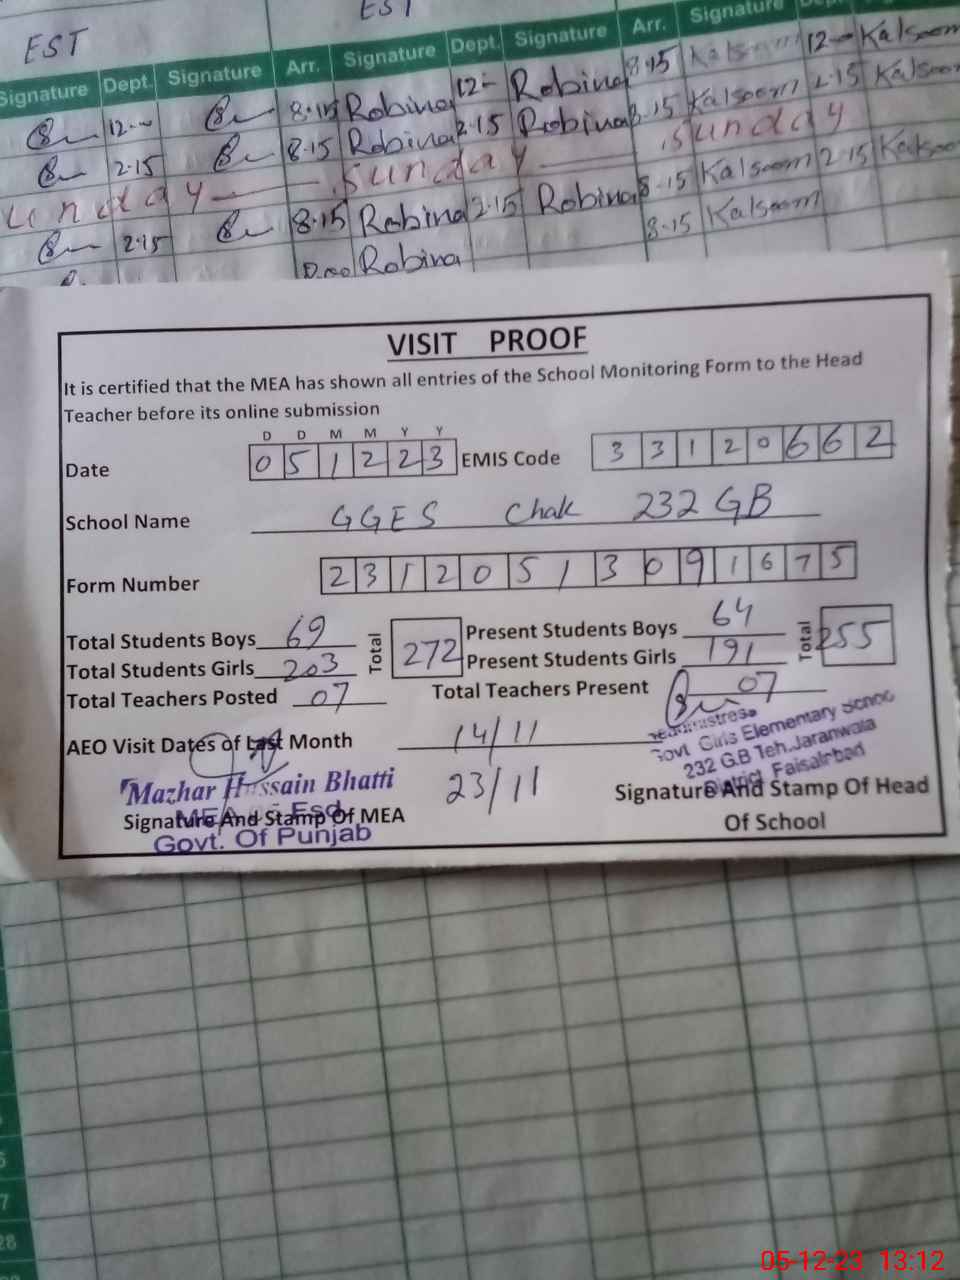 EST EST
Signature Dept. Signature Arr. Signature Dept. Signature Arr. Signature
12- 8.15 Robina 12- Robina 8.15 Kalsoom 12- Kalsoom
2.15 8.15 Robina 2.15 Robina 8.15 Kalsoom 2.15 Kalsoom
Sunday Sunday
2.15 8.15 Robina 2.15 Robina 8.15 Kalsoom 2.15
Robina 8.15 Kalsoom
VISIT PROOF
It is certified that the MEA has shown all entries of the School Monitoring Form to the Head
Teacher before its online submission
D D M M Y Y
Date 0 5 1 2 2 3 EMIS Code 3 3 1 2 0 6 6 2
School Name GGES Chak 232 GB
Form Number 2 3 1 2 0 5 1 3 0 9 1 6 7 5
Total Students Boys 69 Total 272 Present Students Boys 64 Total 255
Total Students Girls 203 Present Students Girls 191
Total Teachers Posted 07 Total Teachers Present 07
AEO Visit Dates of Last Month 14/11
23/11
Mazhar Hussain Bhatti
Signature And Stamp Of MEA
Govt. Of Punjab
Govt. Girls Elementary School
232 G.B Teh. Jaranwala
District Faisalabad
Signature And Stamp Of Head
Of School
7
28
05-12-23 13:12